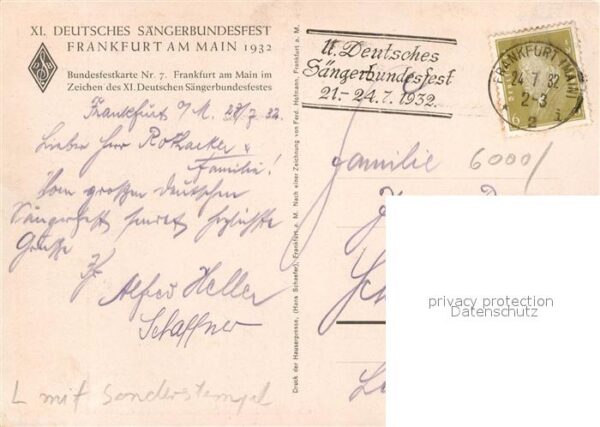 XI. DEUTSCHES SÄNGERBUNDESFEST
FRANKFURT AM MAIN 1932
Bundesfestkarte Nr. 7. Frankfurt am Main im
Zeichen des XI. Deutschen Sängerbundesfestes
Frankfurt a/M.
Lieber Herr Rothacker u
Familie!
Vom großen deutschen
Sängerfest sendet herzlichste
Grüße
Alfred Heller
Schaffner
L mit Sonderstempel
Druck der Hauserpresse, (Hans Schaefer), Frankfurt a. M. Nach einer Zeichnung von Ferd. Hofmann, Frankfurt a. M.
11. Deutsches
Sängerbundesfest
21.-24.7.1932.
FRANKFURT (MAIN)
24.7.32
2-3
2 i
6
Familie 6000/
privacy protection
Datenschutz